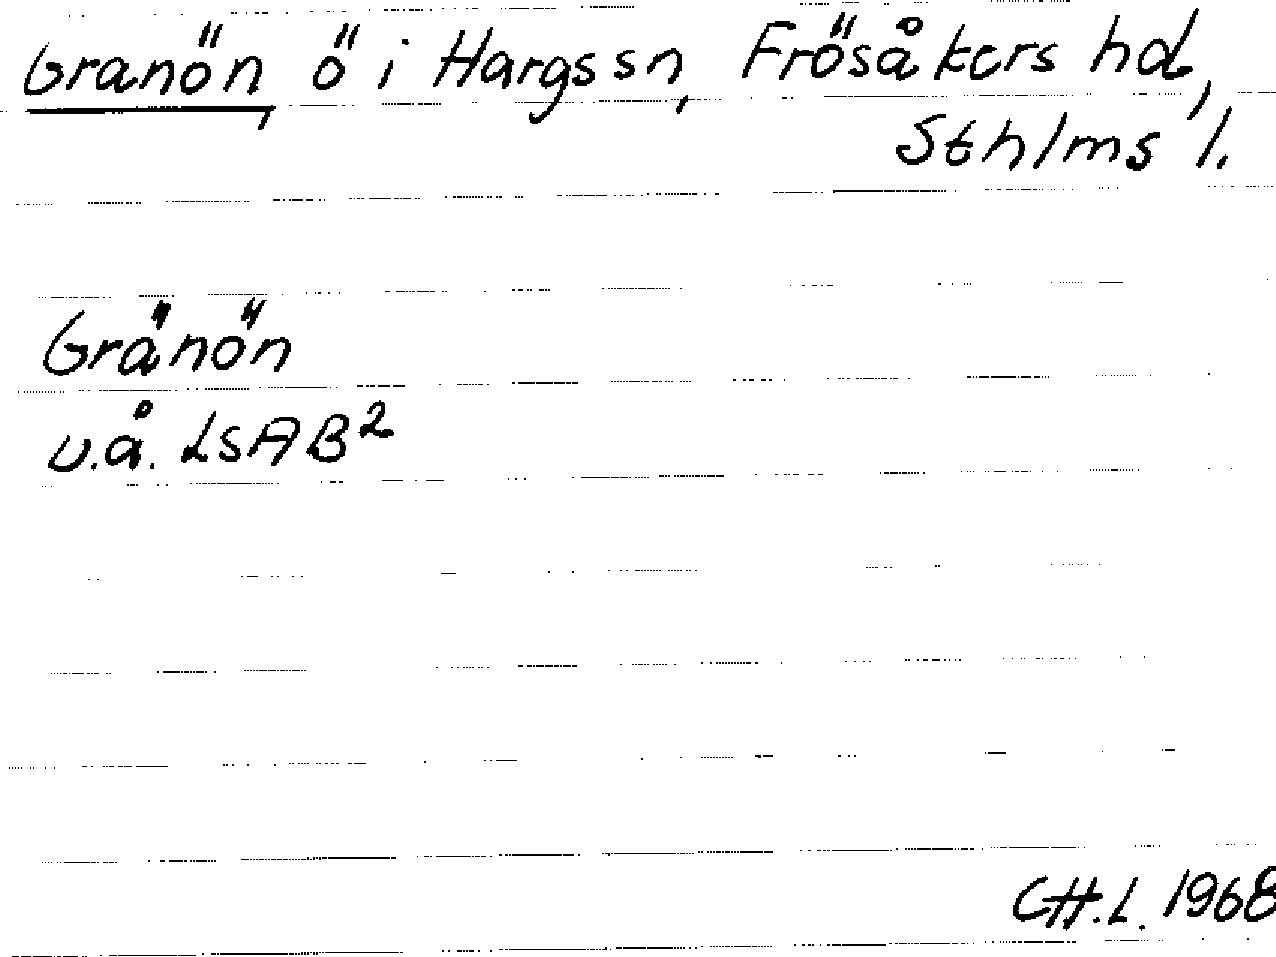 Granön, ö i Hargs sn, Frösåkers hd,
Sthlms l.
Gränön
u.å. LSAB²
CH.L. 1968